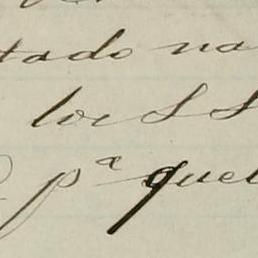 tado na
los S S
pª quel